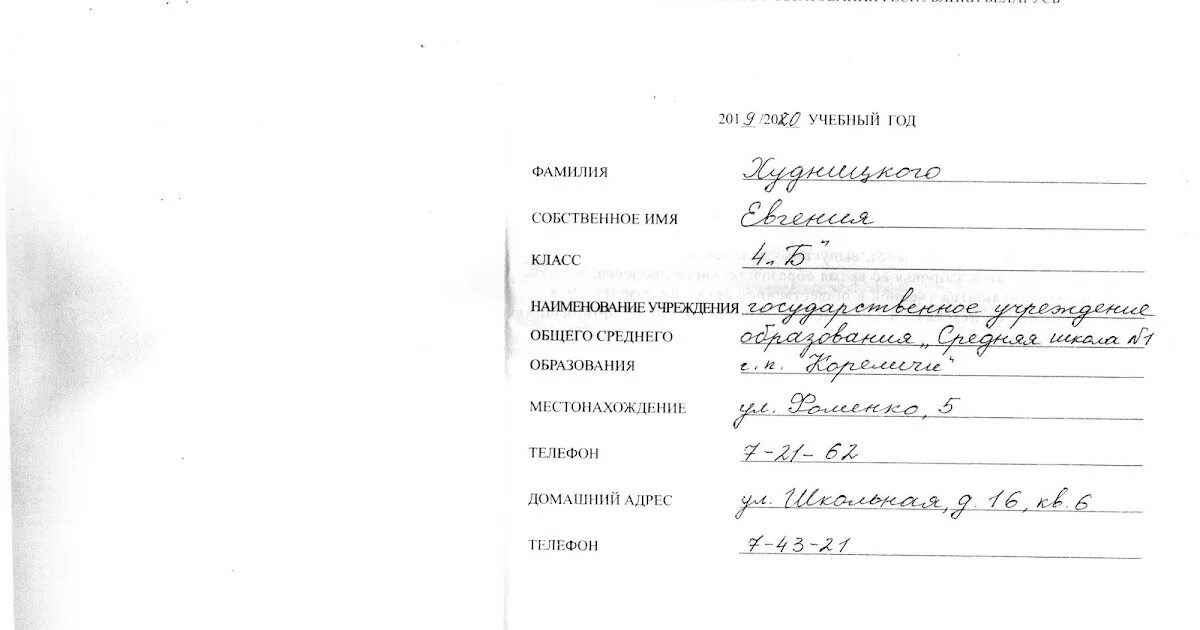 РЕСПУБЛИКИ БЕЛАРУСЬ
2019/2020 УЧЕБНЫЙ ГОД
ФАМИЛИЯ Худницкого
СОБСТВЕННОЕ ИМЯ Евгения
КЛАСС 4 „Б"
НАИМЕНОВАНИЕ УЧРЕЖДЕНИЯ государственное учреждение
ОБЩЕГО СРЕДНЕГО образования „Средняя школа №1
ОБРАЗОВАНИЯ г.п. Кореличи"
МЕСТОНАХОЖДЕНИЕ ул. Фоменко, 5
ТЕЛЕФОН 7-21-62
ДОМАШНИЙ АДРЕС ул. Школьная, д. 16, кв. 6
ТЕЛЕФОН 7-43-21